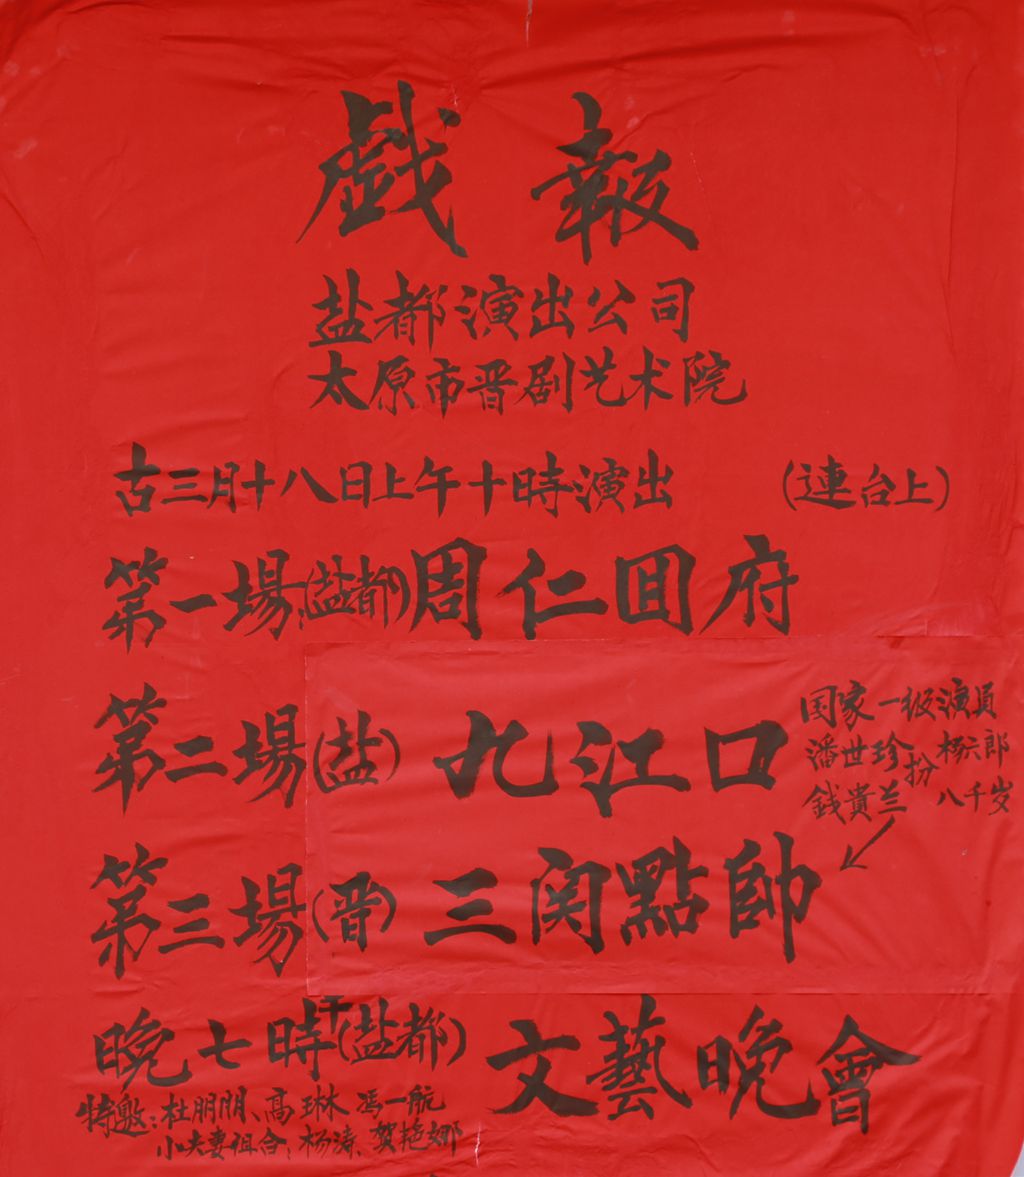 戯報
盐都演出公司
太原市晋剧艺术院
古三月十八日上午十時演出 (連台上)
第一場(盐都)周仁囬府
第二場(盐) 九江口
国家一级演員
潘世珍 扮 杨六郎
錢貴兰 八千岁
第三場(晋) 三関點帥
晚七時半(盐都) 文藝晚會
特邀:杜朋朋、高琳 馮一航
小夫妻组合:杨涛、贺艳娜